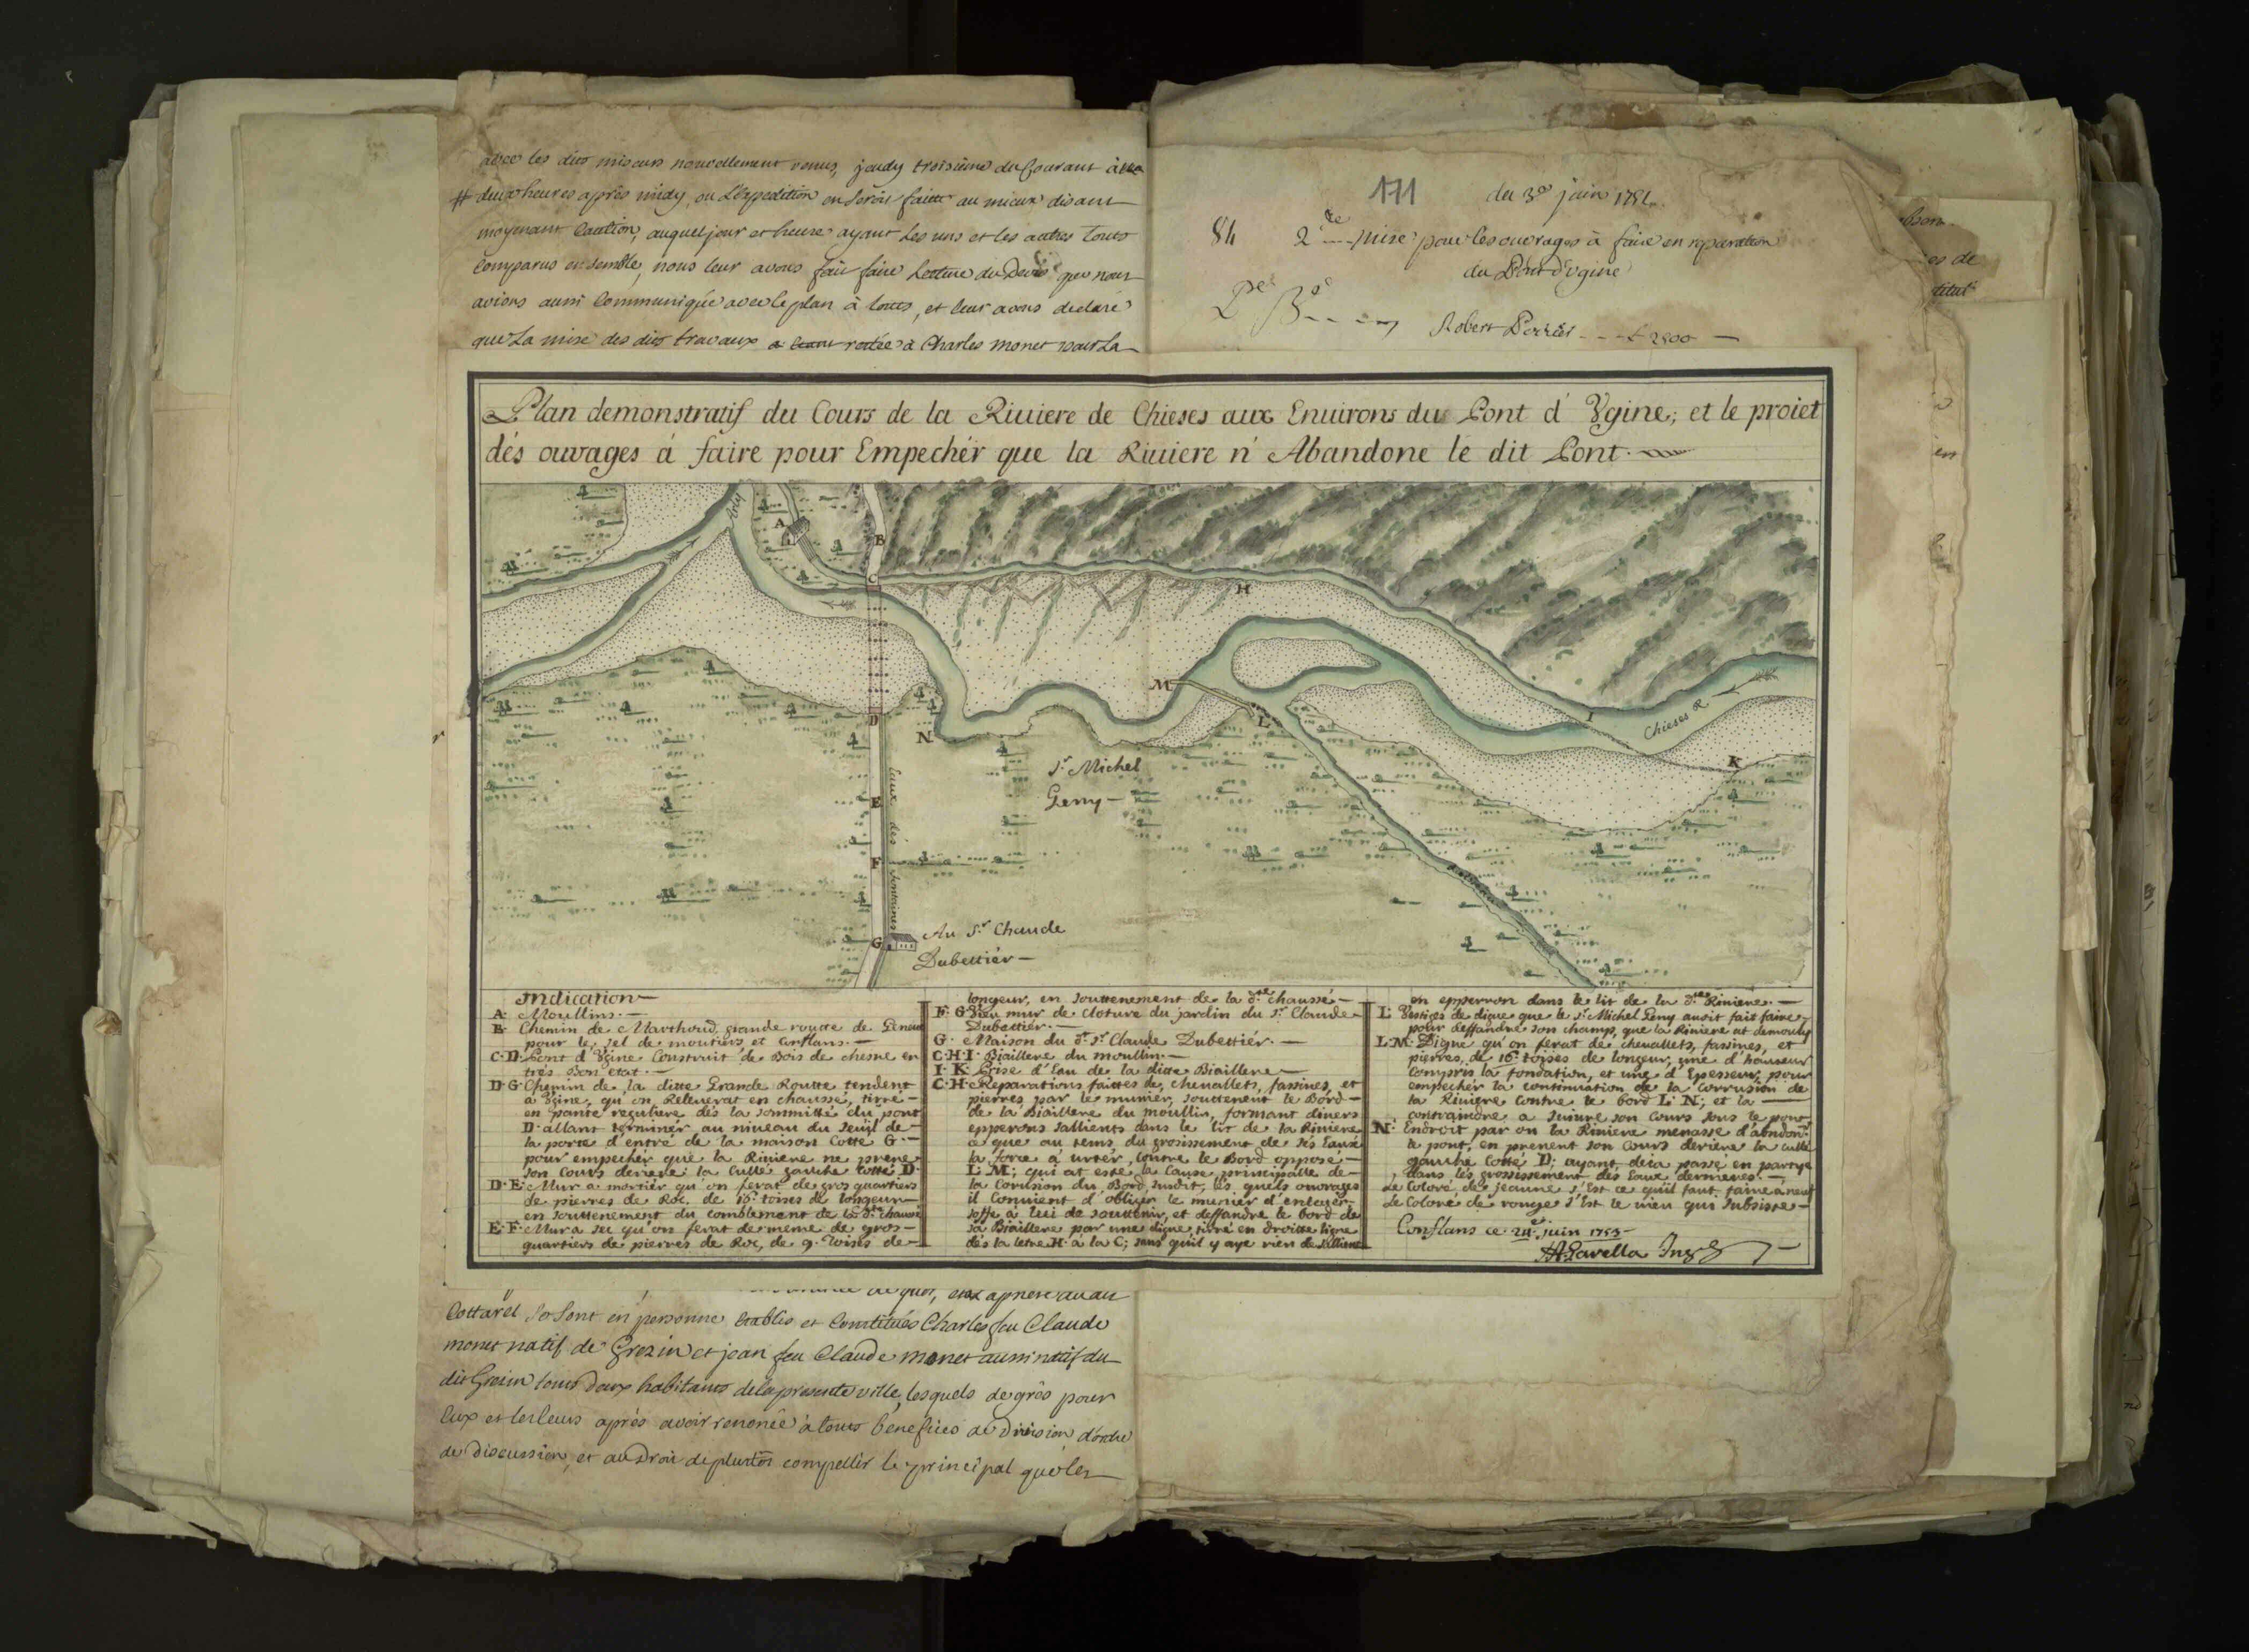 avec les dits miseurs nouvellement venus, jeudy troisième du Courant à
# deux heures après midy, ou L'expedition en seroit faitte au mieux disant
moyenant Caution, auquel jour et heure ayant les uns et les autres touts
Comparus ensemble, nous leur avons fait faire Lecture du Devis que nous
avions aussi Communiqué avec le plan à touts, et leur avons declaré
que La mise des dits travaux restée à Charles monet pour La
171
du 3e juin 1751.
84
2de mise pour les ouvrages à faire en reparation
du Pont d'Ugine
Robert Perrier - - - £ 2800 —
es de
titut
en
Plan demonstratif du Cours de la Riuiere de Chieses aux Enuirons du Pont d' Vgine; et le proiet
dés ouvages á faire pour Empechér que la Riuiere n' Abandone le dit Pont.
Arly
A
B
C
H
M
L
I
Chieses R.
K
D
N
Sr. Michel
Geny —
E
Eaux des fontaines
F
G
Au Sr. Chaude
Dubettiér —
Indication —
A. Moullins. —
B. Chemin de Marthoud, grande routte de Geneue
pour le sel de moutiers et Conflans. —
C. D. Pont d' Vgine Construit de Bois de chesne en
trés Bon etat. —
D. G. Chemin de la ditte Grande Routte tendent
a Vgine, qu'on Releuerat en chaussé, tirré —
en pante reguliere dés la sommitté du pont
D. allant terminér au niueau du seüil de —
la porte d'entré de la maison Cotté G. —
pour empecher que la Riuiere ne prene
son Cours deriere la Culleé gauche Cotté D.
D. E. Mur a mortiér qu'on ferat de gros quartiers
de pierres de Roc. de 16. toises de longeur —
en souttenement du comblement de la dte. chaussé
E. F. Mur a sec qu'on ferat de meme de gros —
quartiers de pierres de Roc, de 9. Toises de —
longeur, en souttenement de la dte. chaussé —
F. G. Vieu mur de cloture du jardin du Sr. Claude
Dubettiér. —
G. Maison du dt. Sr. Claude Dubettiér. —
C. H. I. Biaillere du moullin. —
I. K. Prise d'Eau de la ditte Biaillere —
C. H. Reparations faittes de cheuallets, fassines, et
pierres par le muniér, souttenent le Bord —
de la Biaillere du moullin, formant diuers
epperons sallients dans le lit de la Riuiere
ce que au tems du grosissement de sés Eaux
la force á urtér, Contre le Bord opposé —
L. M; qui at esté la Cause principalle de —
la Corusion du Bord susdit, lés quels ouvrages
il Conuient d'obligér le muniér d'enleuér
soffe á lui de souttenir, et deffandre le bord de
sa Biaillere par une digue tirré en droitte ligne
dés la letre H. á la C; sans qu'il y aye rien de sallient
en epperron dans le lit de la dte. Riuiere. —
L. Vestiges de digue que le Sr. Michel Geny auoit fait faire
pour deffandre son champs, que la Riuiere at demouly
L. M. Digue qu'on ferat de cheuallets, fassines, et
pierres, de 16. toises de longeur, une d'hauteur
compris la fondation, et une d'Epesseur, pour
empecher la continuation de la Corrusion de
la Riuiere Contre le bord L. N; et la —
contraindre a suiure son Cours sous le pont
N. Endroit par ou la Riuiere menasse d'abandonr.
le pont, en prenent son Cours deriere la culleé
gauche Cotté D; ayant déia passé en partye
dans lés grossissement des Eaux dernieres. —
Le Coloré de jeaune s'Est ce qu'il faut faire á neuf
Le Coloré de rouge s'Est le uieu qui subsiste —
Conflans ce 24e. juin 1753 —
Garella Ingr
Cottarel se sont en personne Etablis et Constitués Charles feu Claude
monet natif de Grezin et jean feu Claude monet aussi natif du
dit Grezin touts deux habitants de la presente ville, lesquels de grés pour
Eux et les leurs après avoir renoncé à touts benefices de Division, d'ordre
de Discussion, et au Droit de plustôt compellir le principal que les